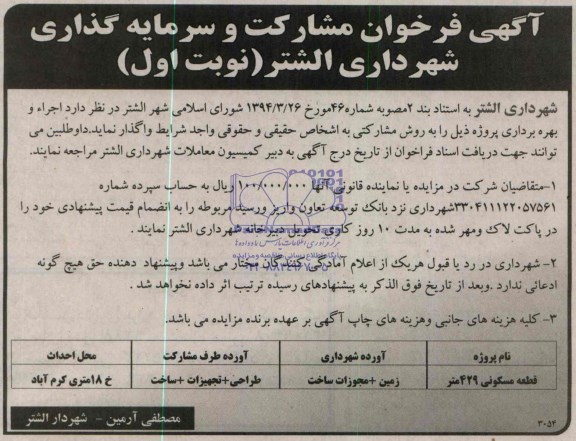 آگهی فرخوان مشارکت و سرمایه گذاری
شهرداری الشتر(نوبت اول)
شهرداری الشتر به استناد بند ۲مصوبه شماره۴۶مورخ ۱۳۹۴/۳/۲۶ شورای اسلامی شهر الشتر در نظر دارد اجراء و
بهره برداری پروژه ذیل را به روش مشارکتی به اشخاص حقیقی و حقوقی واجد شرایط واگذار نماید.داوطلبین می
توانند جهت دریافت اسناد فراخوان از تاریخ درج آگهی به دبیر کمیسیون معاملات شهرداری الشتر مراجعه نمایند.
۱-متقاضیان شرکت در مزایده یا نماینده قانونی آنها ۱۰۰/۰۰۰/۰۰۰ ریال به حساب سپرده شماره
۳۳۰۴۱۱۱۲۲۰۵۷۵۶۱شهرداری نزد بانک توسعه تعاون واریز ورسید مربوطه را به انضمام قیمت پیشنهادی خود را
در پاکت لاک ومهر شده به مدت ۱۰ روز کاری تحویل دبیرخانه شهرداری الشتر نمایند .
۲- شهرداری در رد یا قبول هریک از اعلام آمادگی کنندگان مختار می باشد وپیشنهاد دهنده حق هیچ گونه
ادعائی ندارد .وبعد از تاریخ فوق الذکر به پیشنهادهای رسیده ترتیب اثر داده نخواهد شد .
۳- کلیه هزینه های جانبی وهزینه های چاپ آگهی بر عهده برنده مزایده می باشد.
نام پروژه آورده شهرداری آورده طرف مشارکت محل احداث
قطعه مسکونی ۴۲۹متر زمین +مجوزات ساخت طراحی+تجهیزات +ساخت خ ۱۸متری کرم آباد
مصطفی آرمین - شهردار الشتر
۳۰۵۴